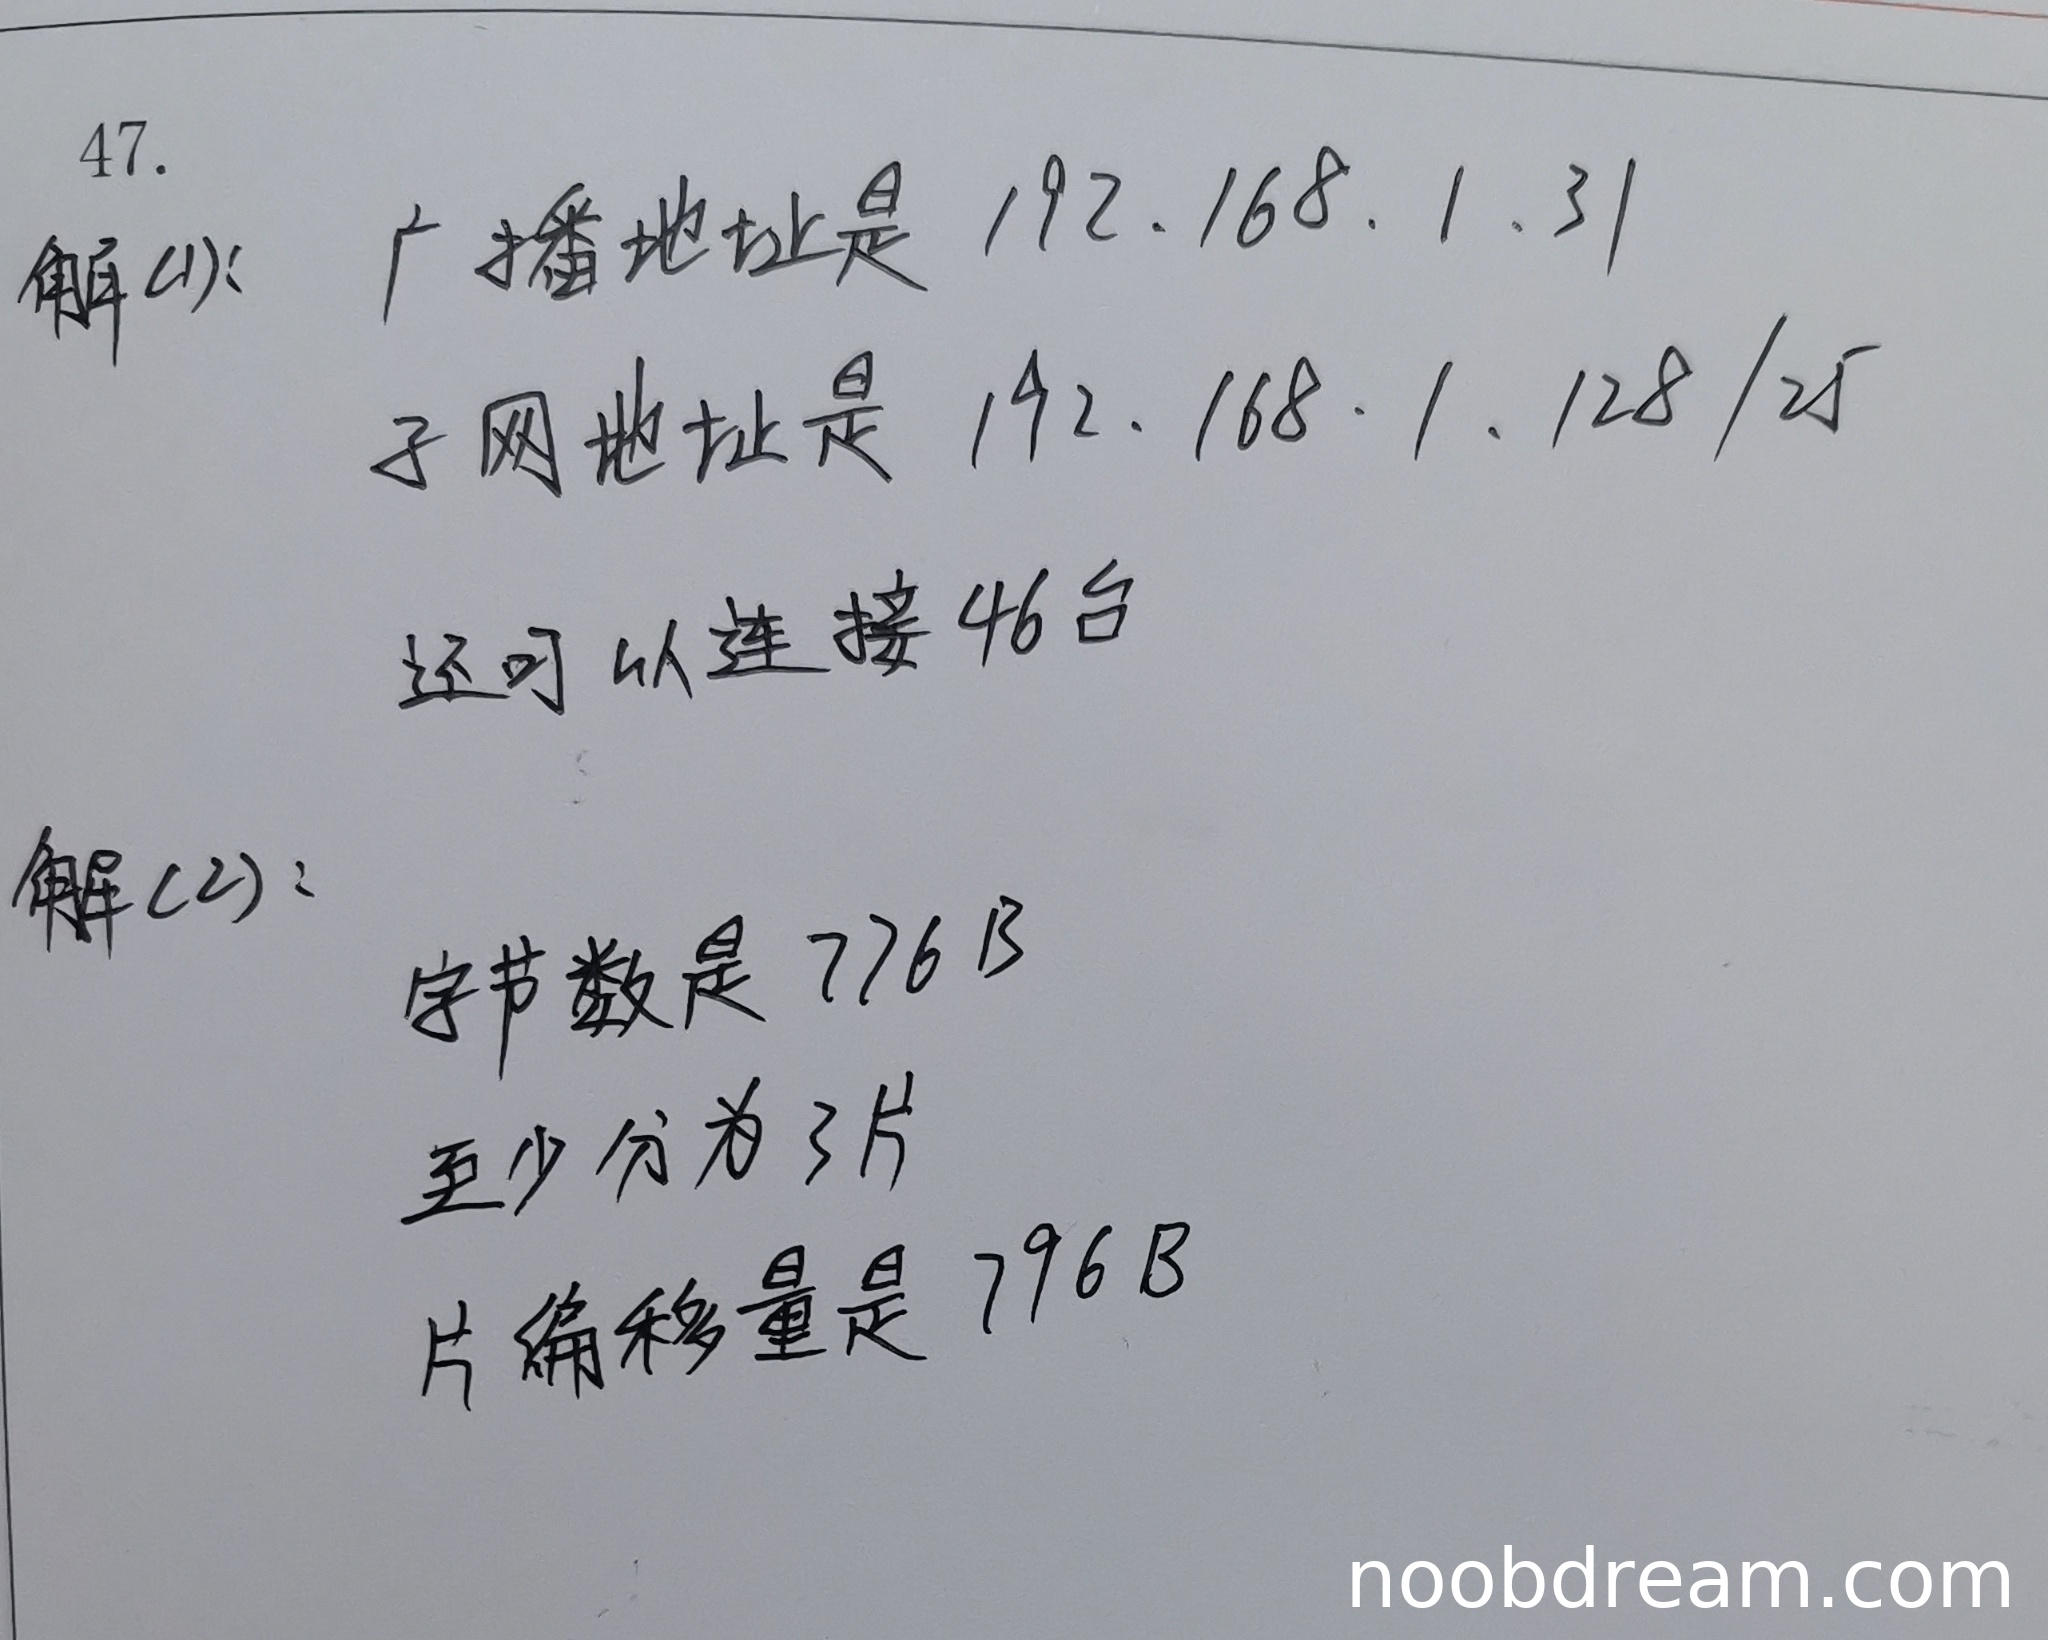 47.
解(1): 广播地址是 192.168.1.31
子网地址是 192.168.1.128/25
还可以连接46台
解(2):
字节数是 776B
至少分为3片
片偏移量是 796B
noobdream.com